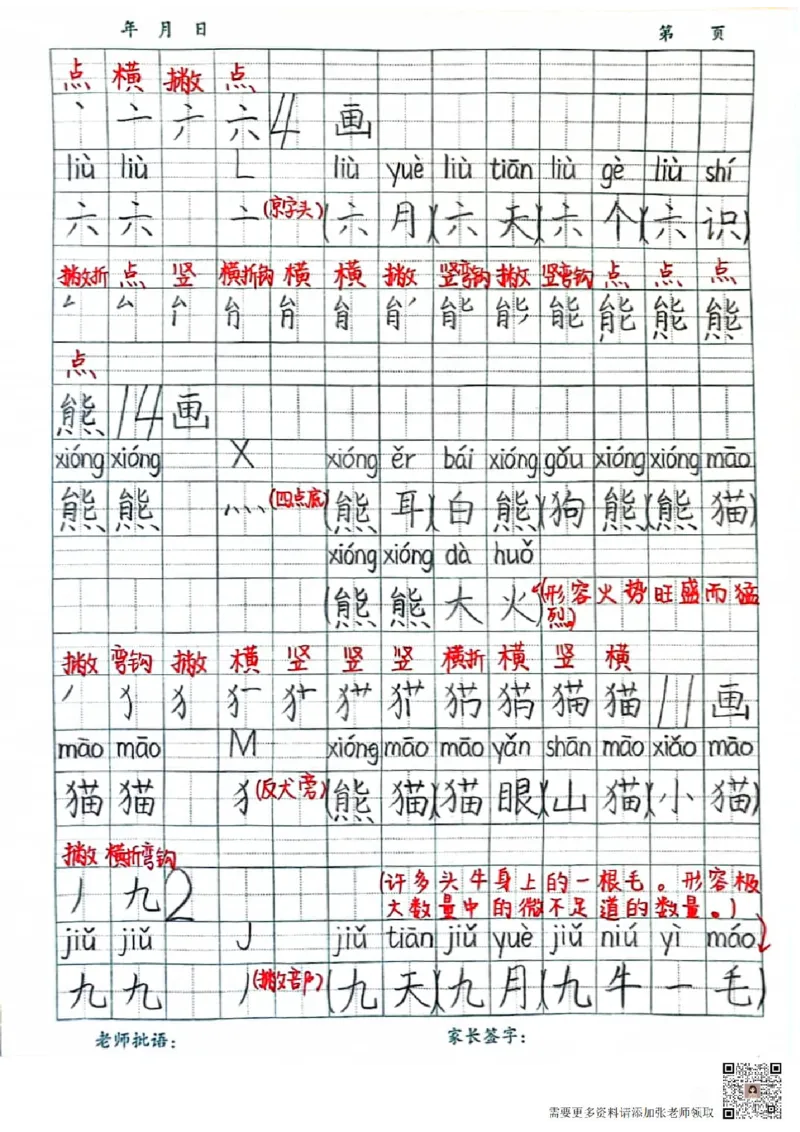 年 月 日 第 页
点 横 撇 点
丶 亠 六 4 画
liù liù L liù yuè liù tiān liù gè liù shí
六 六 亠 (京字头) (六 月)(六 天)(六 个)(六 识)
撇折 点 竖 横折钩 横 横 撇 竖弯钩 撇 竖弯钩 点 点 点
能 能 熊
点
熊 14 画
xióng xióng X xióng ěr bái xióng gǒu xióng xióng māo
熊 熊 灬 (四点底) (熊 耳)(白 熊)(狗 熊)(熊 猫)
xióng xióng dà huǒ
(熊 熊 大 火) (形容火势旺盛而猛
烈)
撇 弯钩 撇 横 竖 竖 竖 横折 横 竖 横
丿 犭 猫 猫 11 画
māo māo M xióng māo māo yǎn shān māo xiǎo māo
猫 猫 犭 (反犬旁) (熊 猫)(猫 眼)(山 猫)(小 猫)
撇 横折弯钩
丿 九 2 (许多头牛身上的一根毛。形容极
大数量中的微不足道的数量。)
jiǔ jiǔ J jiǔ tiān jiǔ yuè jiǔ niú yì máo
九 九 丿 (撇部) (九 天)(九 月)(九 牛 一 毛)
老师批语： 家长签字：
需要更多资料请添加张老师领取